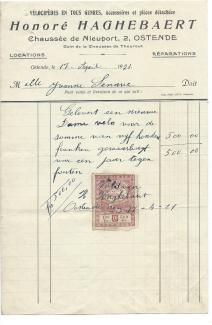 VÉLOCIPÈDES EN TOUS GENRES, accessoires et pièces détachées
Honoré HAGHEBAERT
Chaussée de Nieuport, 2, OSTENDE
Coin de la Chaussée de Thourout
LOCATIONS RÉPARATIONS
Ostende, le 17 April 1921
M elle Yvonne Doit
Pour vente et livraison de ce qui suit:
Geleverd een nieuwe
Dame velo voor de
somme van vijf honderd 500 00
franken gewaarborgd 500 00
voor een jaar tegen
fouten
Voldaan
H Haghebaert
Ostende 17-4-21